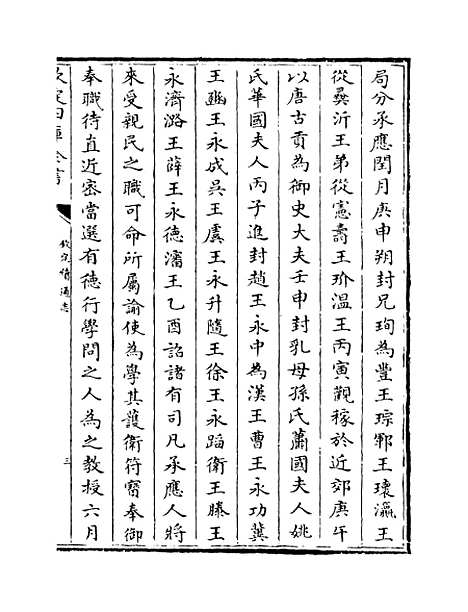 局分承應閏月庚申朔封兄珣為豐王琮鄆王瓌瀛王
從彞沂王弟從憲壽王玠温王丙寅觀稼於近郊庚午
以唐古貢為御史大夫壬申封乳母孫氏蕭國夫人姚
氏華國夫人丙子進封趙王永中為漢王曹王永功冀
王豳王永成吳王虞王永升隨王徐王永蹈衛王滕王
永濟潞王薛王永德瀋王乙酉詔諸有司凡承應人將
來受親民之職可命所屬諭使為學其護衛符寳奉御
奉職侍直近密當選有德行學問之人為之教授六月
欽定四庫全書
欽定續通志
三